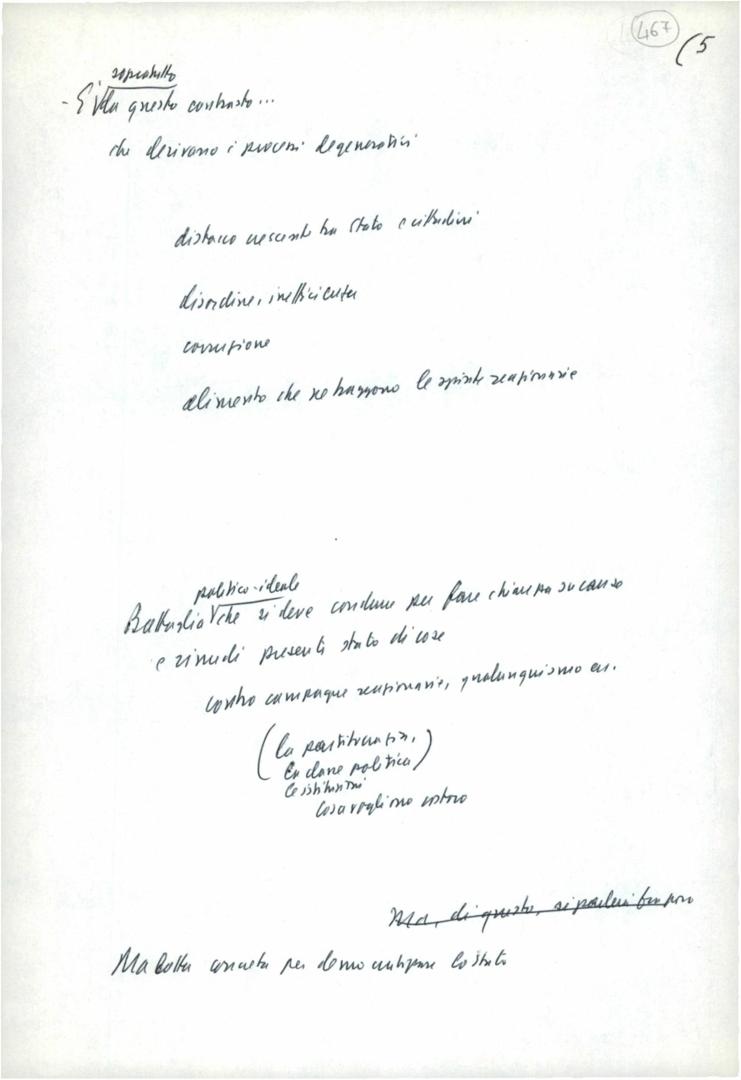 467
(5
soprattutto
- E' da questo contrasto...
che derivano i processi degenerativi
distacco crescente tra Stato e cittadini
disordine, inefficienza
corruzione
alimento che ne traggono le spinte reazionarie
politico-ideale
Battaglia che si deve condurre per fare chiarezza su cause
e rimedi presenti stato di cose
contro campagne reazionarie, qualunquismo ecc.
(la partitocrazia,
la classe politica)
le istituzioni
cosa vogliono costoro
Ma, di questo, si parlerà
Ma lotta concreta per democratizzare lo Stato